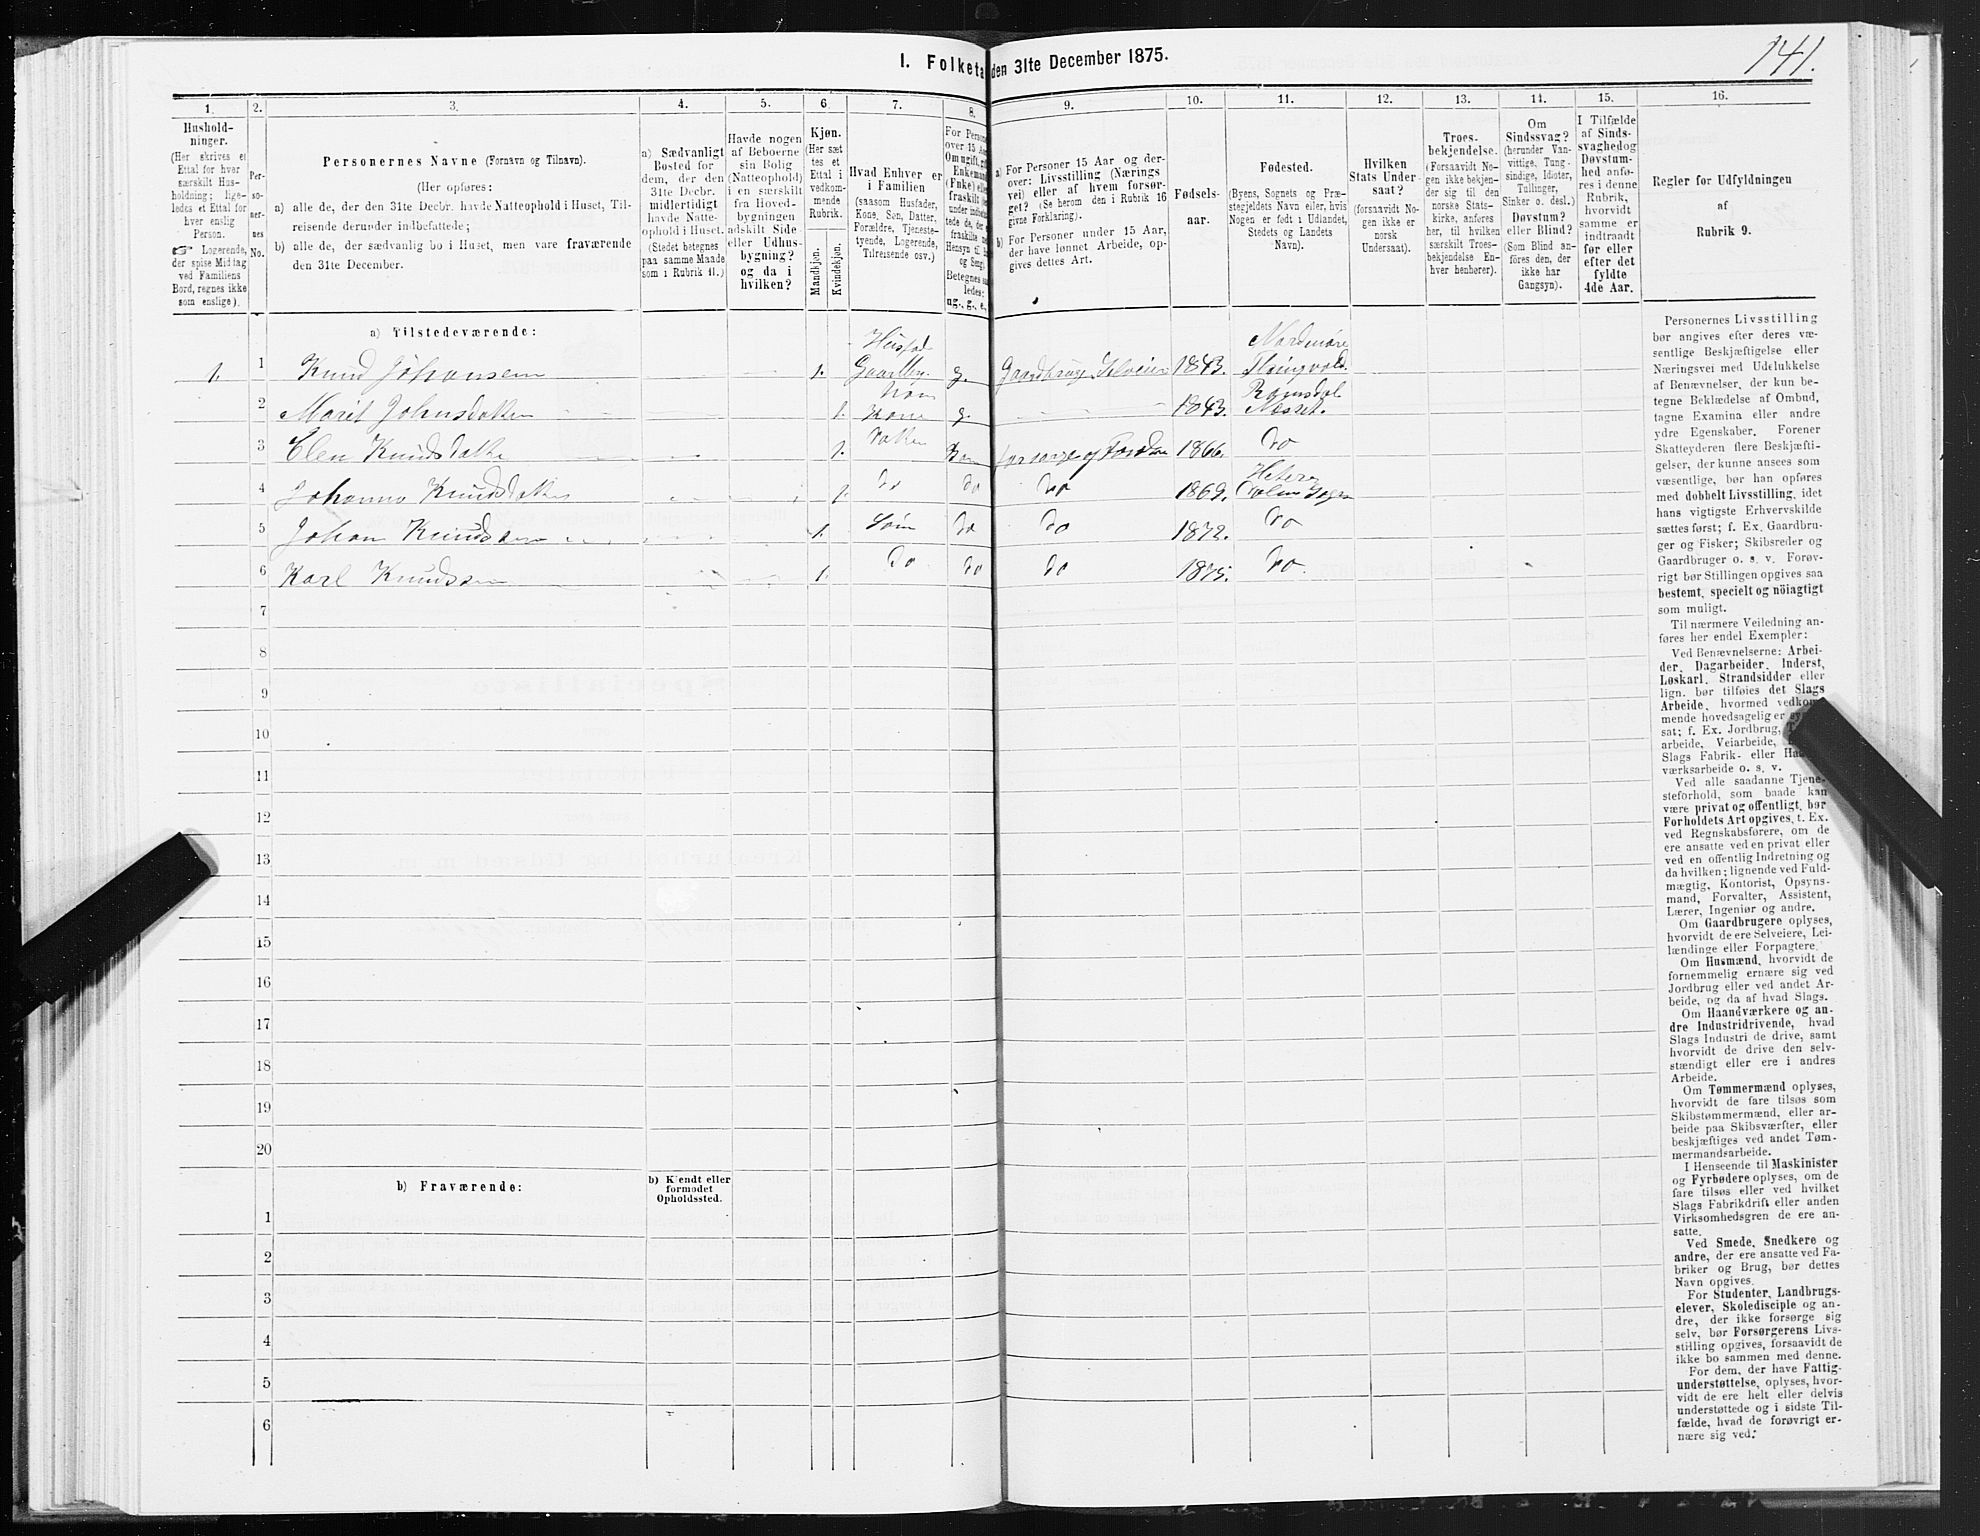 141.
I. Folketæ den 31te December 1875.
1. 2. 3. 4. 5. 6. 7. 8. 9. 10. 11. 12. 13. 14. 15. 16.
Hushold-
ninger.
(Her skrives et
Ettal for hver
særskilt Hus-
holdning; lige-
ledes et Ettal for
hver enslig
Person.
☞ Logerende,
der spise Middag
ved Familiens
Bord, regnes ikke
som enslige).
Per-
so-
ner-
nes
No.
Personernes Navne (Fornavn og Tilnavn).
(Her opføres:
a) alle de, der den 31te Decbr. havde Natteophold i Huset, Til-
reisende derunder indbefattede;
b) alle de, der sædvanlig bo i Huset, men vare fraværende
den 31te December.
a) Sædvanligt
Bosted for
dem, der den
31te Decbr.
midlertidigt
havde Natte-
ophold i Huset.
(Stedet betegnes
paa samme Maade
som i Rubrik 11.)
Havde nogen
af Beboerne
sin Bolig
(Natteophold)
i en særskilt
fra Hoved-
bygningen
adskilt Side-
eller Udhus-
bygning?
og da i
hvilken?
Kjøn.
(Her sæt
tes et
Ettal i
vedkom-
mende
Rubrik.
Mandkjøn.
Kvindekjøn.
Hvad Enhver er
i Familien
(saasom Husfader,
Kone, Søn, Datter,
Forældre, Tjeneste-
tyende, Logerende,
Tilreisende osv.)
For Persone
over 15 Aa
Om ugift, gif
Enkemand
(Enke) elle
fraskilt
Hensyn til
og Seng).
Betegnes saa
ledes:
ug., g., e.,
a) For Personer 15 Aar og der-
over: Livsstilling (Nærings
vei) eller af hvem forsør-
get? (Se herom den i Rubrik 16
givne Forklaring).
b) For Personer under 15 Aar,
der have lønnet Arbeide, op-
gives dettes Art.
Fødsels-
aar.
Fødested.
(Byens, Sognets og Præ-
stegjeldets Navn eller, hvis
Nogen er født i Udlandet,
Stedets og Landets
Navn).
Hvilken
Stats Under
saat?
(forsaavidt No-
gen ikke er
norsk
Undersaat).
Troes-
bekjendelse.
(Forsaavidt No-
gen ikke bekjen-
der sig til den
norske Stats-
kirke, anføres
her, til hvilken
særskilt Troes-
bekjendelse En-
hver henhører).
Om
Sindssvag?
(herunder Van-
vittige, Tung-
sindige, Idioter,
Tullinger,
Sinker o. desl.)
Døvstum?
eller Blind?
(Som Blind an-
föres den, der
ikke har
Gangsyn).
I Tilfælde
af Sinds-
svaghed og
Døvstum-
hed anfø-
res i denne
Rubrik,
hvorvidt
samme er
indtraadt
før eller
efter det
fyldte
4de Aar.
Regler for Udfyldningen
af
Rubrik 9.
a) Tilstedeværende:
1. 1 Knud Johansen 1. Husfad Gaardbr. g. Gaardbruger Selveier 1843. Nordmøre Thingvold.
2 Marit Johnsdatter 1. Kone g. 1843. Romsdal Næsset.
3 Elen Knudsdatter 1. Datter 1866. Do
4 Johanna Knudsdatter 1. Do Do Do 1869.
5 Johan Knudsen 1. Søn Do Do 1872. Do
6 Karl Knudsen 1. Do Do Do 1875. Do
7
8
9
10
11
12
13
14
15
16
17
18
19
20
b) Fraværende:
b) Kjendt eller
formodet
Opholdssted.
1
2
3
4
5
6
Personernes Livsstilling
bør angives efter deres væ-
sentlige Beskjæftigelse eller
Næringsvei med Udelukkelse
af Benævnelser, der kun be-
tegne Beklædelse af Ombud,
tagne Examina eller andre
ydre Egenskaber. Forener
Skatteyderen flere Beskjæfti-
gelser, der kunne ansees som
væsentlige, bør han opføres
med dobbelt Livsstilling, idet
hans vigtigste Erhvervskilde
sættes først; f. Ex. Gaardbru-
ger og Fisker; Skibsreder og
Gaardbruger o. s. v. Forøv-
rigt bør Stillingen opgives saa
bestemt, specielt og nöiagtigt
som muligt.
Til nærmere Veiledning an-
føres her endel Exempler:
Ved Benævnelserne: Arbei-
der, Dagarbeider, Inderst,
Løskarl, Strandsidder eller
lign. bør tilføies det Slags
Arbeide, hvormed vedkom-
mende hovedsagelig er
sat; f. Ex. Jordbrug,
arbeide, Veiarbeide,
Slags Fabrik- eller
værksarbeide o. s. v.
Ved alle saadanne Tjene-
steforhold, som baade kan
være privat og offentligt, bør
Forholdets Art opgives, t. Ex.
ved Regnskabsførere, om de
ere ansatte ved en privat eller
ved en offentlig Indretning og
da hvilken; lignende ved Fuld-
mægtig, Kontorist, Opsyns-
mand, Forvalter, Assistent,
Lærer, Ingeniør og andre.
Om Gaardbrugere oplyses,
hvorvidt de ere Selveiere, Lei-
lændinge eller Forpagtere.
Om Husmænd, hvorvidt de
fornemmelig ernære sig ved
Jordbrug eller ved andet Ar-
beide, og da af hvad Slags.
Om Haandværkere og an-
dre Industridrivende, hvad
Slags Industri de drive, samt
hvorvidt de drive den selv-
stændigt eller ere i andres
Arbeide.
Om Tømmermænd oplyses,
hvorvidt de fare tilsøs som
Skibstømmermænd, eller ar-
beide paa Skibsværfter, eller
beskjæftiges ved andet Tøm-
mermandsarbeide.
I Henseende til Maskinister
og Fyrbødere oplyses, om de
fare tilsøs eller ved hvilket
Slags Fabrikdrift eller anden
Virksomhedsgren de ere an-
satte.
Ved Smede, Snedkere og
andre, der ere ansatte ved Fa-
briker og Brug, bør dettes
Navn opgives.
For Studenter, Landbrugs-
elever, Skoledisciple og an-
dre, der ikke forsørge sig
selv, bør Forsørgerens Livs-
stilling opgives, forsaavidt de
ikke bo sammen med denne.
For dem, der have Fattig-
understøttelse, oplyses, hvor-
vidt de ere helt eller delvis
understøttede og i sidste Til-
fælde, hvad de forøvrigt er-
nære sig ved.